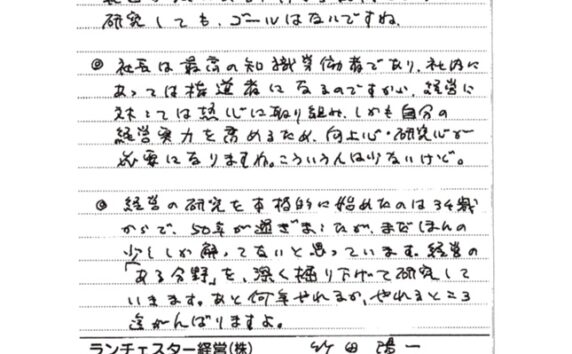 研究しても、ゴールはないですね。
◎ 社長は最高の知識労働者であり、社内に
あっては指導者になるのですから、経営に
対しては熱心に取り組み、しかも自分の
経営実力を高めるため、向上心・研究心が
必要になりますね。こういう人は少ないけど。
◎ 経営の研究を本格的に始めたのは34歳
からで、50年が過ぎましたが、まだほんの
少ししか解ってないと思っています。経営の
「ある分野」を、深く掘り下げて研究して
いきます。あと何年やれるか、やれるところ
迄がんばりますよ。
ランチェスター経営(株) 竹田陽一